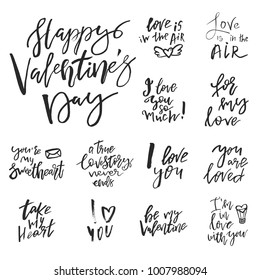 Happy
Valentine's
Day
love is
in the AiR
Love
is in the
AiR
I love
you so
much!
for
my
love
you're
my
sweetheart
a true
lovestory
never
ends
I love
you
you are
loved
take
my
Heart
I
you
be my
Valentine
I'm
in
love
with you
1007988094